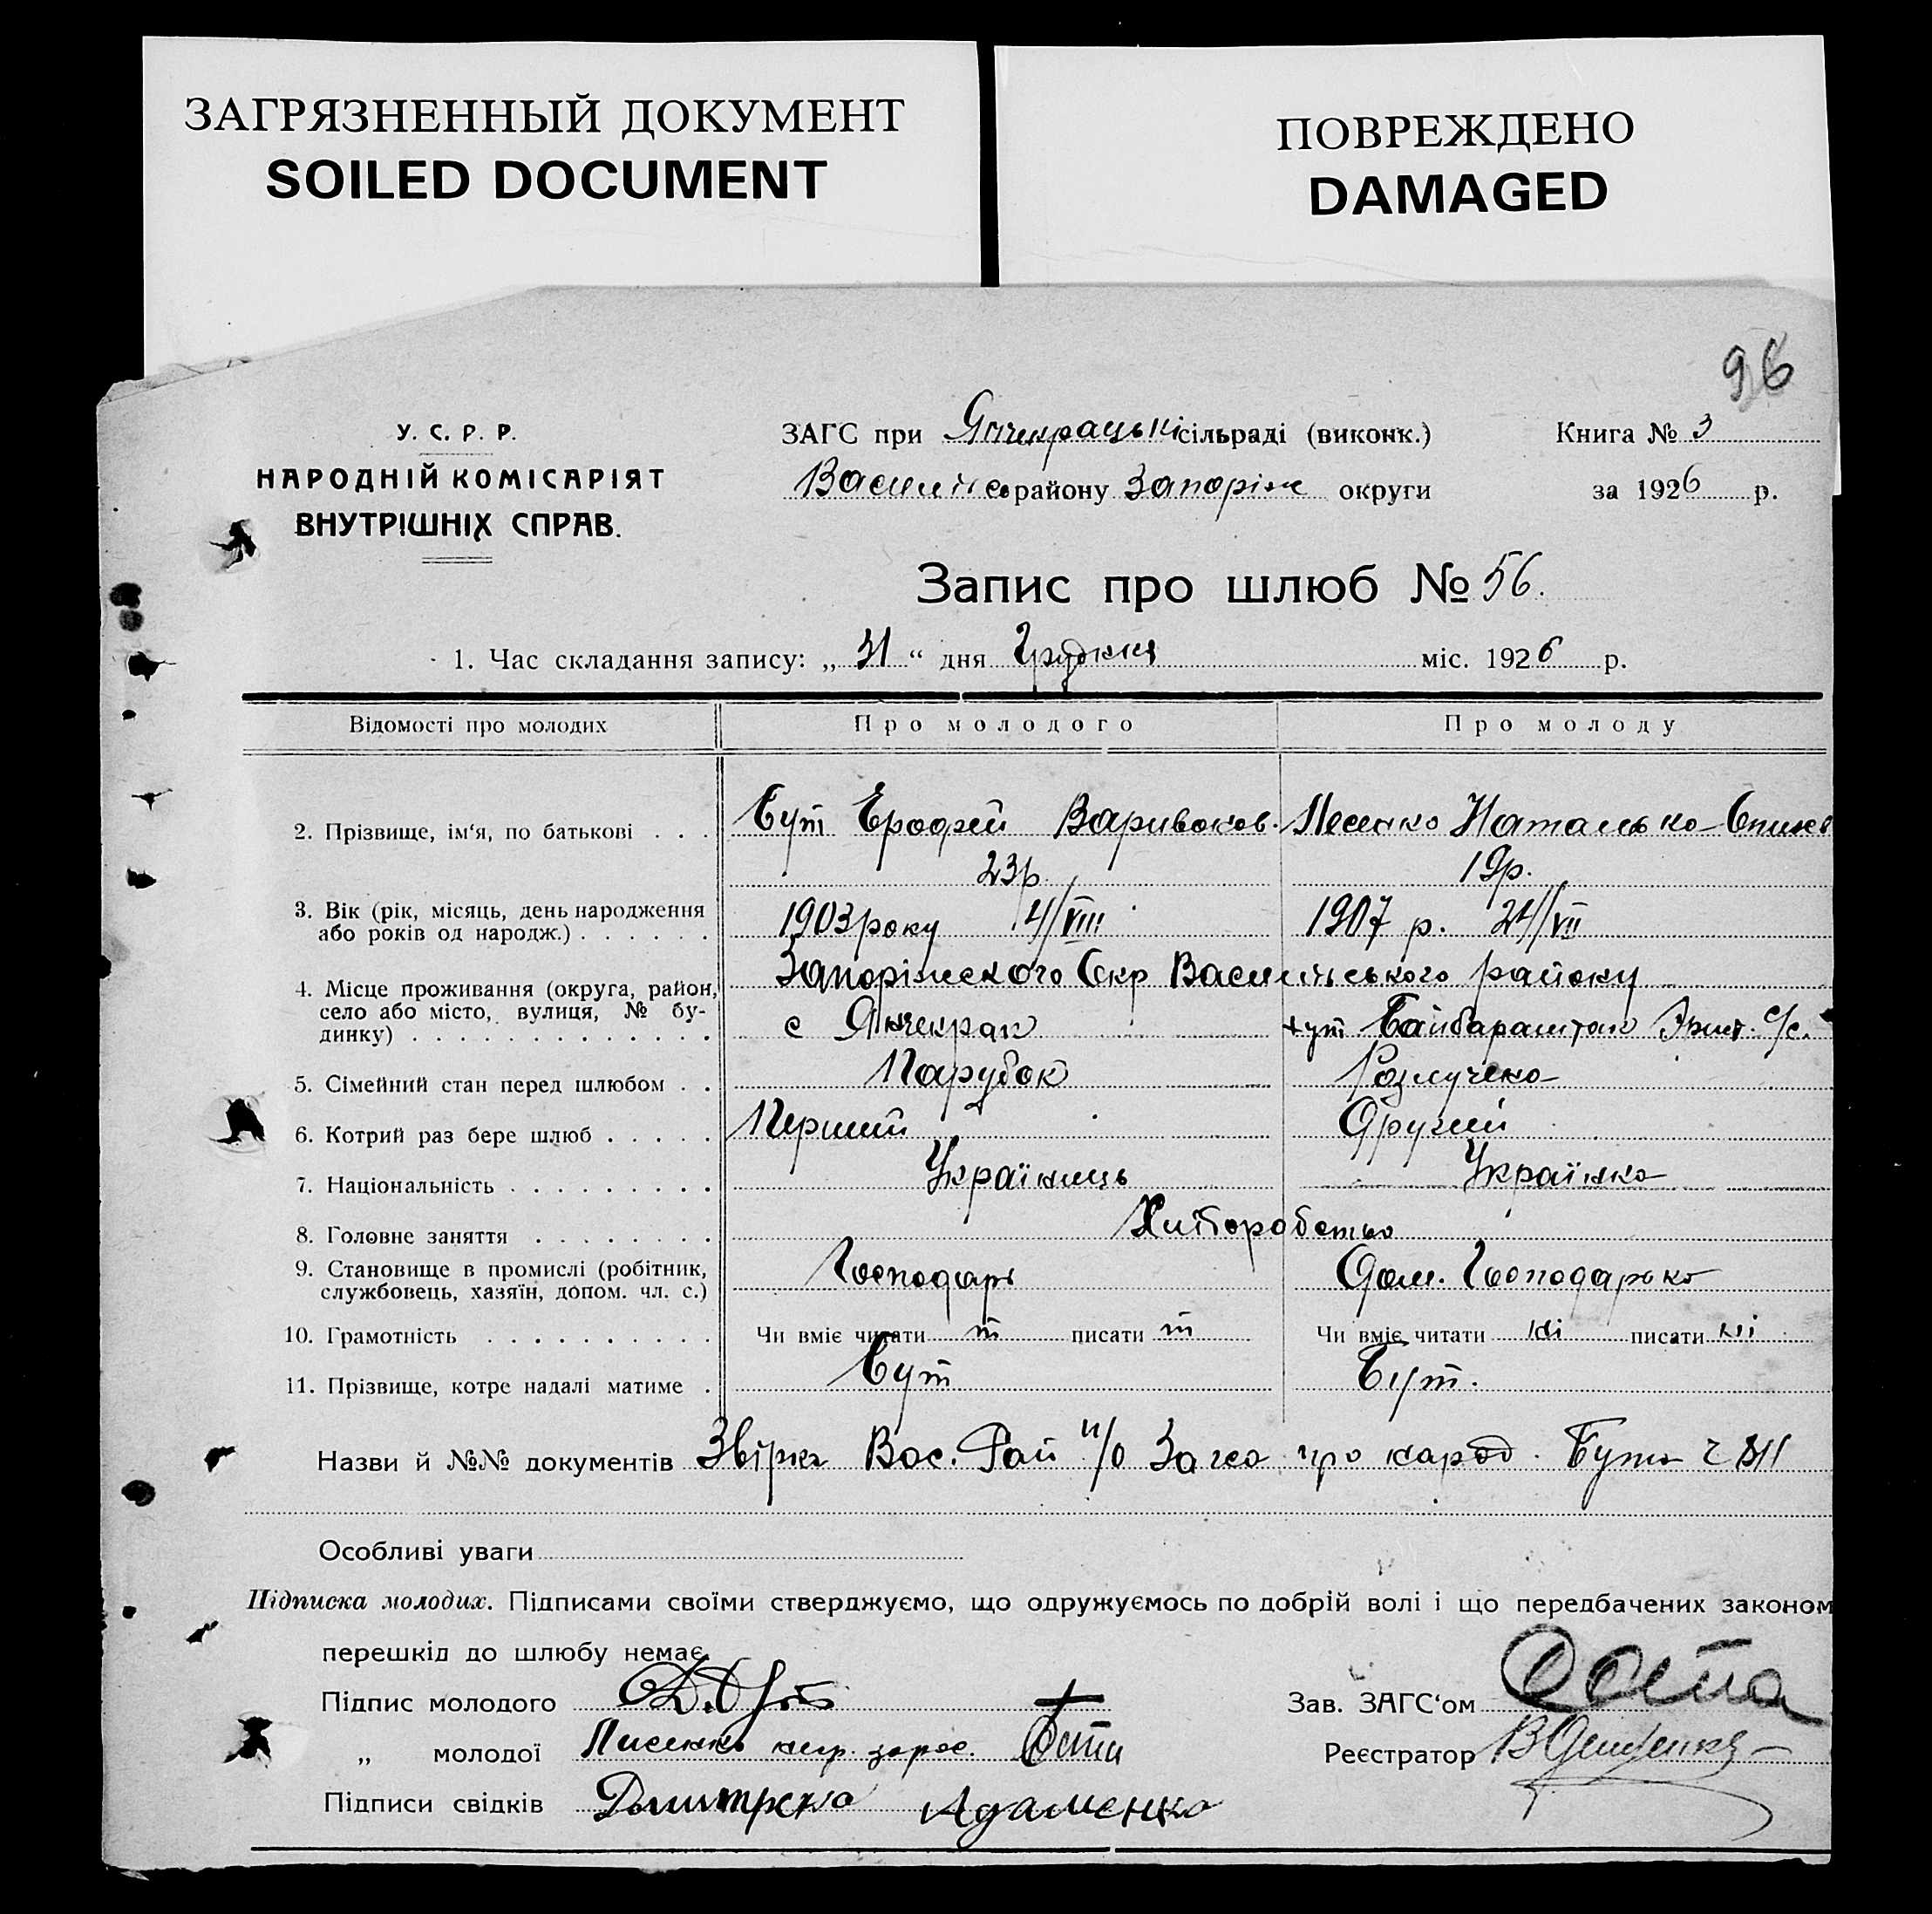 ЗАГРЯЗНЕННЫЙ ДОКУМЕНТ
SOILED DOCUMENT
ПОВРЕЖДЕНО
DAMAGED
96
У. С. Р. Р.
НАРОДНІЙ КОМІСАРІЯТ
ВНУТРІШНІХ СПРАВ.
ЗАГС при Янчекрацькі сільраді (виконк.) Книга № 3
Василівсо району Запоріж округи за 1926 р.
Запис про шлюб № 56.
1. Час складання запису: „ 31 “ дня Грудня міс. 1926 р.
Відомості про молодих Про молодого Про молоду
2. Прізвище, ім‘я, по батькові . . . Бут Ерофей Вариваков. Лесенко Наталька
23р. 19р.
3. Вік (рік, місяць, день народження
або років од народж.) . . . . . . 1903 року 4/VIII 1907 р. 24/VII
Запоріжского Окр Василівського району
4. Місце проживання (округа, район,
село або місто, вулиця, № бу-
динку) . . . . . . . . . . . . . с Янчекрак хут Байбараштан с/с.
5. Сімейний стан перед шлюбом . . Парубок Розлучена
6. Котрий раз бере шлюб . . . . . Перший Другий
7. Національність . . . . . . . . . Українець Українка
8. Головне заняття . . . . . . . . Хліборобство
9. Становище в промислі (робітник,
службовець, хазяїн, допом. чл. с.) Господарь Дом. Господарька
10. Грамотність . . . . . . . . . . Чи вміє читати т писати т Чи вміє читати ні писати ні
11. Прізвище, котре надалі матиме . Бут Бут.
Назви й №№ документів Звірка Вас. Рай и/о Загса про народ. Бута
Особливі уваги
Підписка молодих. Підписами своїми стверджуємо, що одружуємось по добрій волі і що передбачених законом
перешкід до шлюбу немає
Підпис молодого Зав. ЗАГС‘ом
„ молодої Лисенко негр. Реєстратор
Підписи свідків Дмитренко Адаменко